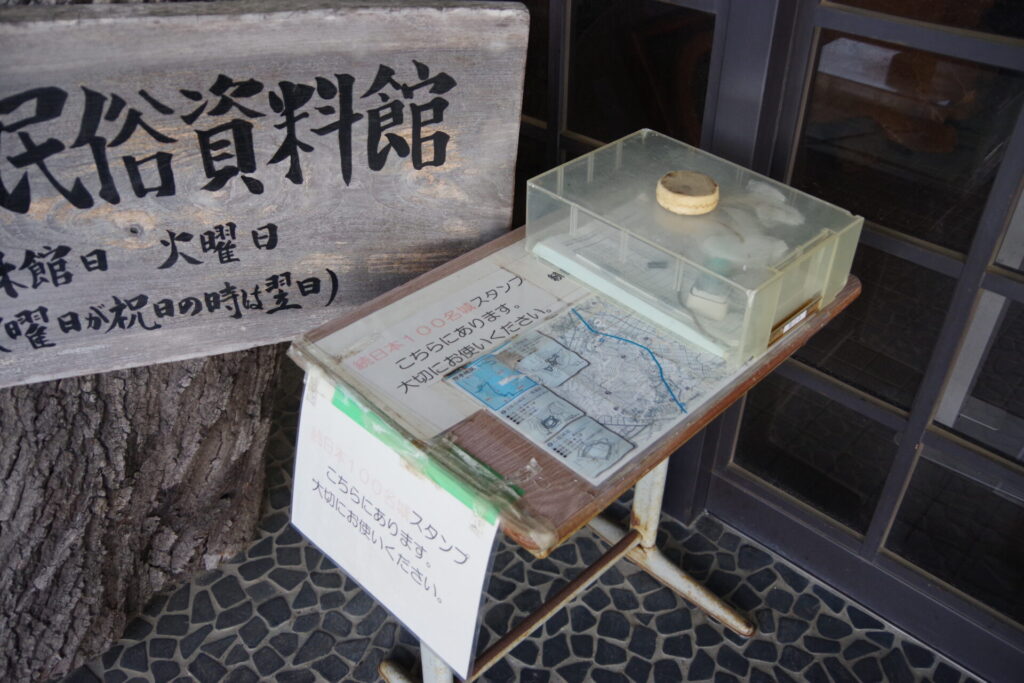 民俗資料館
休館日 火曜日
(火曜日が祝日の時は翌日)
続
続日本100名城スタンプ
こちらにあります。
大切にお使いください。
続日本100名城スタンプ
こちらにあります。
大切にお使いください。